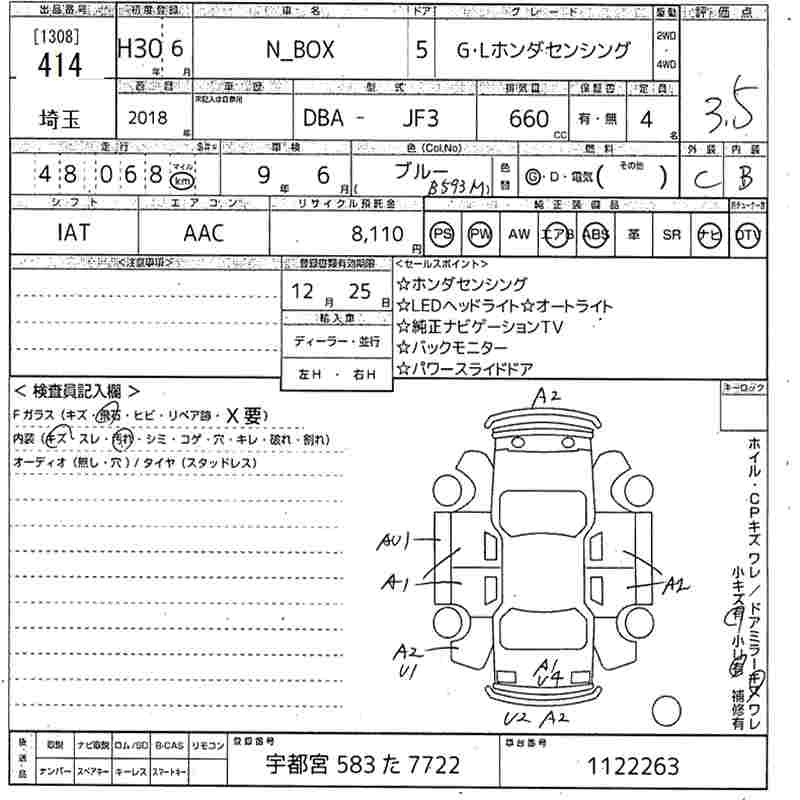 出品番号 初度登録 車名 ドア グレード 駆動 評価点
[1308] 414 H30年 6月 N_BOX 5 G・Lホンダセンシング 2WD・4WD 3.5
埼玉
西暦 車歴 型式 排気量 保証書 定員
2018年 DBA - JF3 660cc 有・無 4名
走行 車検 色(Col,No) 燃料 外装 内装
48068 マイル km 9年 6月 ブルー( B593M) 色替 G・D・電気(その他 ) C B
シフト エアコン リサイクル預託金 純正装備品
IAT AAC 8,110円 PS PW AW エアB ABS 革 SR ナビ DTV
<注意事項> 登録書類有効期限 <セールスポイント>
12月 25日
☆ホンダセンシング
☆LEDヘッドライト☆オートライト
☆純正ナビゲーションTV
☆バックモニター
☆パワースライドドア
輸入車
ディーラー・並行
左H ・ 右H
キーロック
< 検査員記入欄 >
Fガラス(キズ・飛石・ヒビ・リペア跡・X要)
内装(キズ・スレ・汚れ・シミ・コゲ・穴・キレ・破れ・割れ)
オーディオ(無し・穴)/タイヤ(スタッドレス)
A2
AU1
A1
A2
A2
U1
A1
U4
U2 A2
ホイル・CPキズ ワレ/ドアミラーキズワレ
小キズ有 小凹有 補修有
後送品 取説 ナビ取説 ロム/SD B-CAS リモコン
ナンバー スペアキー キーレス スマートキー
登録番号 車台番号
宇都宮 583 た 7722 1122263